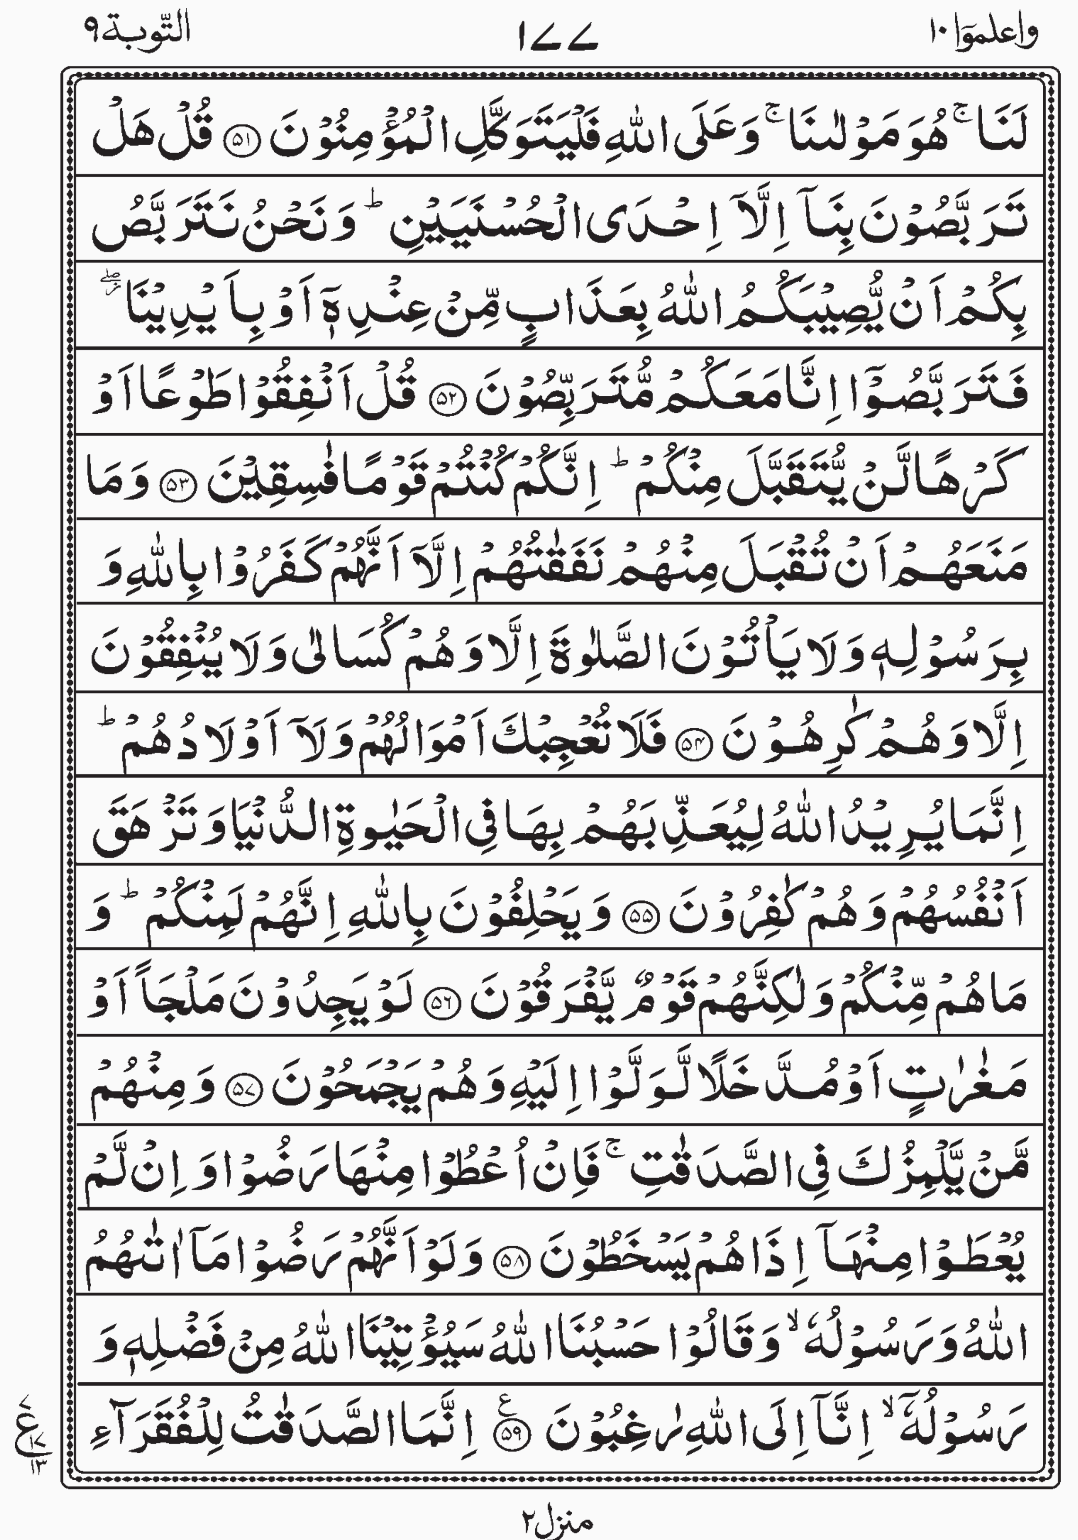 واعلموٓا ١٠ ١٧٧ التّوبة ٩
لَنَا ۚ هُوَ مَوْلٰىنَا ۚ وَعَلَى اللّٰهِ فَلْيَتَوَكَّلِ الْمُؤْمِنُوْنَ ﴿۵۱﴾ قُلْ هَلْ
تَرَبَّصُوْنَ بِنَاۤ اِلَّاۤ اِحْدَى الْحُسْنَيَيْنِ ؕ وَنَحْنُ نَتَرَبَّصُ
بِكُمْ اَنْ يُّصِيْبَكُمُ اللّٰهُ بِعَذَابٍ مِّنْ عِنْدِهٖۤ اَوْ بِاَيْدِيْنَا ۖ
فَتَرَبَّصُوْۤا اِنَّا مَعَكُمْ مُّتَرَبِّصُوْنَ ﴿۵۲﴾ قُلْ اَنْفِقُوْا طَوْعًا اَوْ
كَرْهًا لَّنْ يُّتَقَبَّلَ مِنْكُمْ ؕ اِنَّكُمْ كُنْتُمْ قَوْمًا فٰسِقِيْنَ ﴿۵۳﴾ وَمَا
مَنَعَهُمْ اَنْ تُقْبَلَ مِنْهُمْ نَفَقٰتُهُمْ اِلَّاۤ اَنَّهُمْ كَفَرُوْا بِاللّٰهِ وَ
بِرَسُوْلِهٖ وَلَا يَاْتُوْنَ الصَّلٰوةَ اِلَّا وَهُمْ كُسَالٰى وَلَا يُنْفِقُوْنَ
اِلَّا وَهُمْ كٰرِهُوْنَ ﴿۵۴﴾ فَلَا تُعْجِبْكَ اَمْوَالُهُمْ وَلَاۤ اَوْلَادُهُمْ ؕ
اِنَّمَا يُرِيْدُ اللّٰهُ لِيُعَذِّبَهُمْ بِهَا فِى الْحَيٰوةِ الدُّنْيَا وَتَزْهَقَ
اَنْفُسُهُمْ وَهُمْ كٰفِرُوْنَ ﴿۵۵﴾ وَيَحْلِفُوْنَ بِاللّٰهِ اِنَّهُمْ لَمِنْكُمْ ؕ وَ
مَا هُمْ مِّنْكُمْ وَلٰكِنَّهُمْ قَوْمٌ يَّفْرَقُوْنَ ﴿۵۶﴾ لَوْ يَجِدُوْنَ مَلْجَاً اَوْ
مَغٰرٰتٍ اَوْ مُدَّخَلًا لَّوَلَّوْا اِلَيْهِ وَهُمْ يَجْمَحُوْنَ ﴿۵۷﴾ وَمِنْهُمْ
مَّنْ يَّلْمِزُكَ فِى الصَّدَقٰتِ ۚ فَاِنْ اُعْطُوْا مِنْهَا رَضُوْا وَاِنْ لَّمْ
يُعْطَوْا مِنْهَاۤ اِذَا هُمْ يَسْخَطُوْنَ ﴿۵۸﴾ وَلَوْ اَنَّهُمْ رَضُوْا مَاۤ اٰتٰىهُمُ
اللّٰهُ وَرَسُوْلُهٗ ۙ وَقَالُوْا حَسْبُنَا اللّٰهُ سَيُؤْتِيْنَا اللّٰهُ مِنْ فَضْلِهٖ وَ
رَسُوْلُهٗۤ ۙ اِنَّاۤ اِلَى اللّٰهِ رٰغِبُوْنَ ﴿۵۹﴾ ع اِنَّمَا الصَّدَقٰتُ لِلْفُقَرَآءِ
٧ ع ١٧ ١٣
منزل ٢